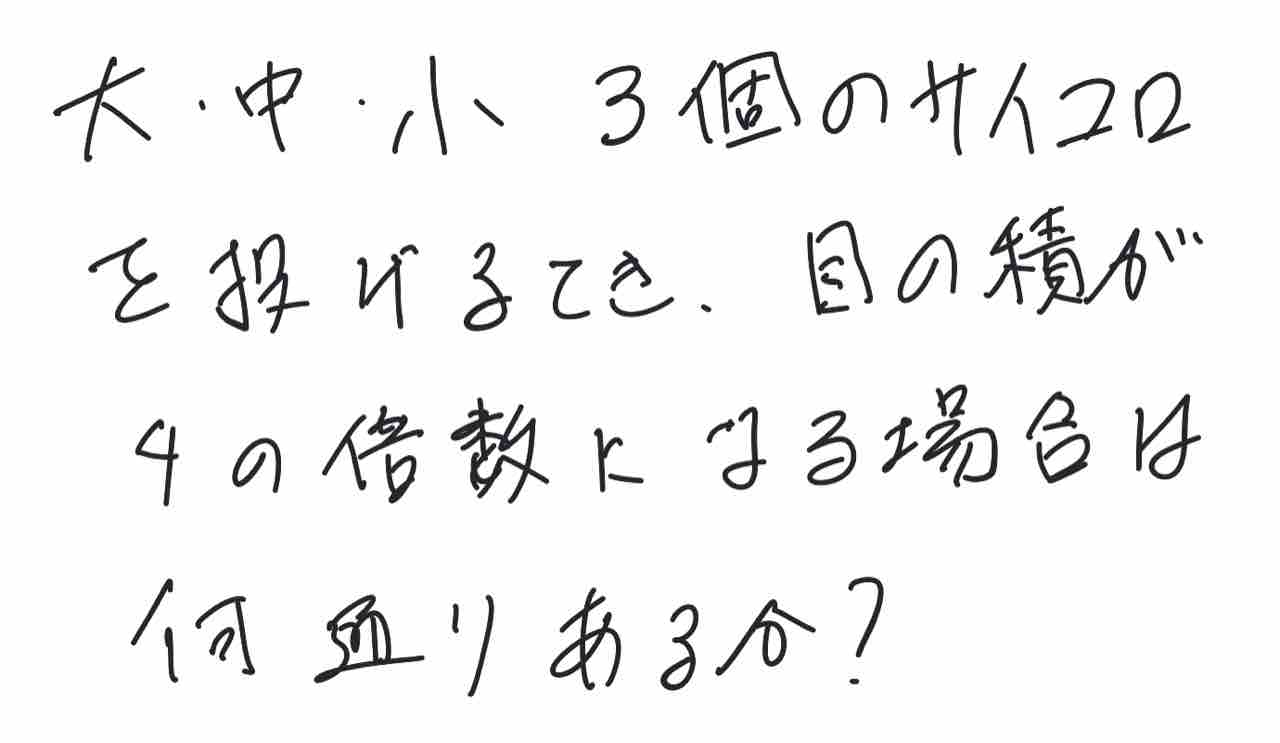 大・中・小 3個のサイコロ
を投げるとき、目の積が
4の倍数になる場合は
何通りあるか?